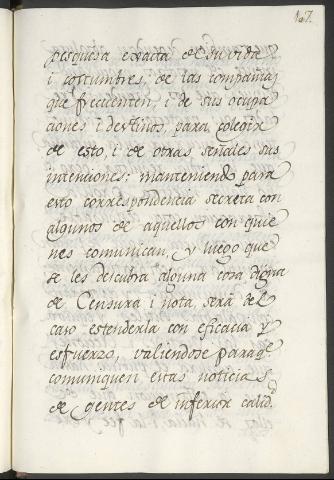 147.
pesquesa exacta de su vida
i costumbres; de las compañias
que frecuenten, i de sus ocupa
ciones i destinos, para colegir
de esto, i de otras señales sus
intenciones: manteniendo para
esto correspondencia secreta con
algunos de aquellos con quie
nes comunican, y luego que
se les descubra alguna cosa digna
de Censura i nota, será del
caso estenderla con eficacia y
esfuerzo, valiendose para q.e
comuniquen estas noticias
de gentes de inferior calid.d